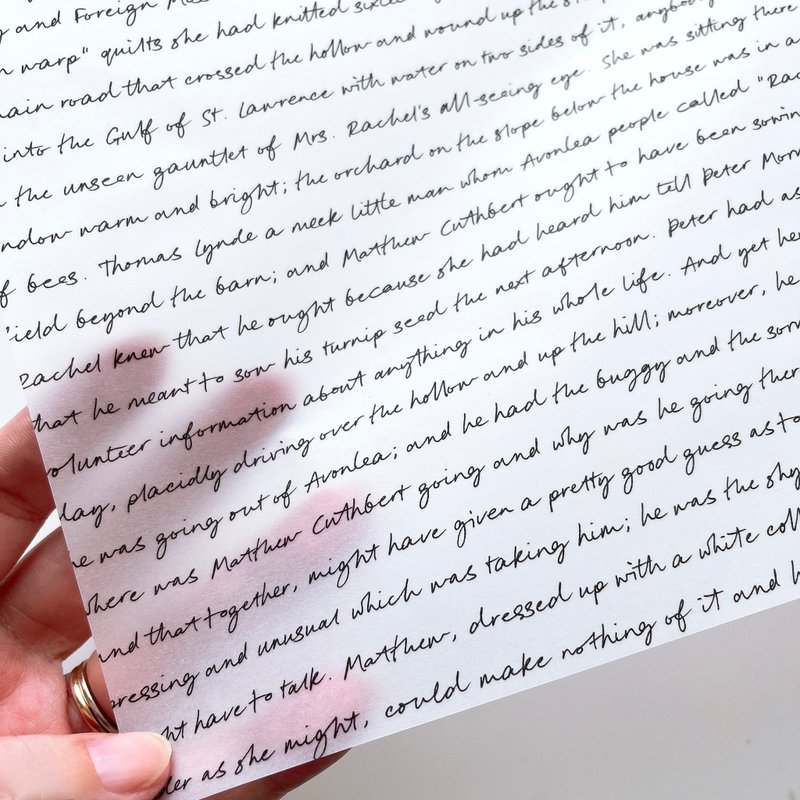 and Foreign
warp" quilts she had knitted
main road that crossed the hollow and wound up the
into the Gulf of St. Lawrence with water on two sides of it,
the unseen gauntlet of Mrs. Rachel's all-seeing eye. She was sitting there
warm and bright; the orchard on the slope below the house was in a
of bees. Thomas Lynde a meek little man whom Avonlea people called "Rac
field beyond the barn; and Matthew Cuthbert ought to have been sowin
Rachel knew that he ought because she had heard him tell Peter Morr
that he meant to sow his turnip seed the next afternoon. Peter had as
volunteer information about anything in his whole life. And yet he
day, placidly driving over the hollow and up the hill; moreover, he
he was going out of Avonlea; and he had the buggy and the sorr
where was Matthew Cuthbert going and why was he going ther
and that together, might have given a pretty good guess as to
pressing and unusual which was taking him; he was the shy
ght have to talk. Matthew, dressed up with a white coll
der as she might, could make nothing of it and h